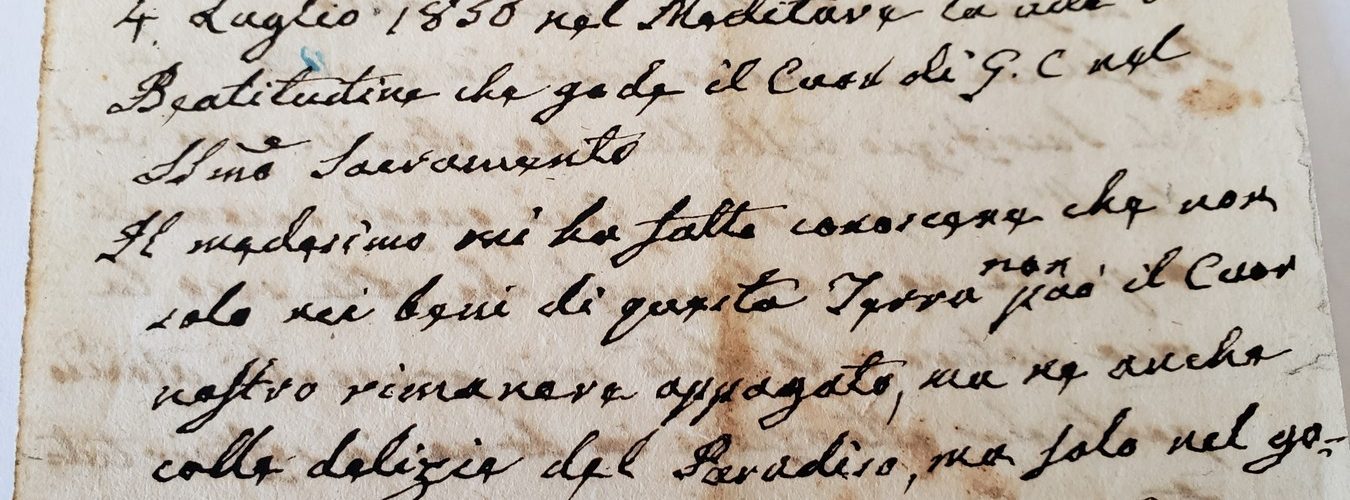 4. Luglio 1850 nel Meditare la
Beatitudine che gode il Cuor di G. C nel
SSmo Sacramento
Il medesimo mi ha fatto conoscere che non
solo nei beni di questa Terra non può il Cuor
nostro rimanere appagato, ma ne anche
colle delizie del Paradiso, ma solo nel go-